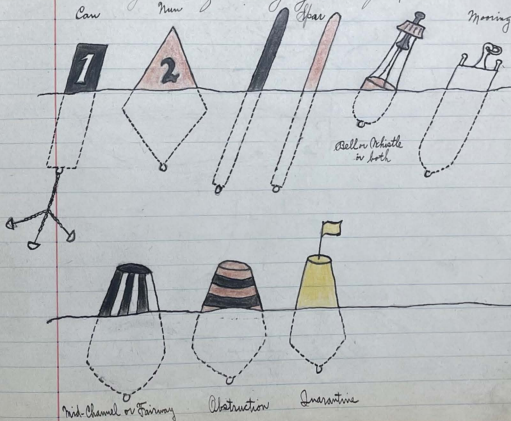 Can
Nun
Spar
Mooring
1
2
Bell or Whistle
or both
Mid-Channel or Fairway
Obstruction
Quarantine